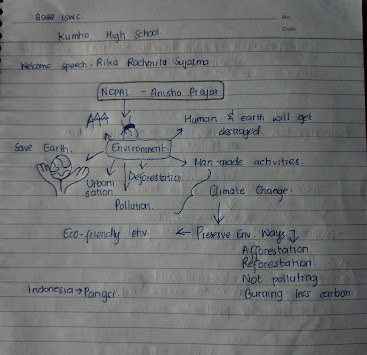 2020 ISWC
No.
Date
Kumho High School.
Welcome speech: Rika Rachmita Sujatma
NEPAL - Anisha Prajap
Human & earth will get
destroyed.
Save Earth.
Environment
Man-made activities.
Urbani
sation.
Deforestation.
Pollution.
Climate Change.
Eco-friendly env. ← Preserve Env. Ways.
Afforestation.
Reforestation.
Not polluting
Burning less carbon.
Indonesia → Pangri.